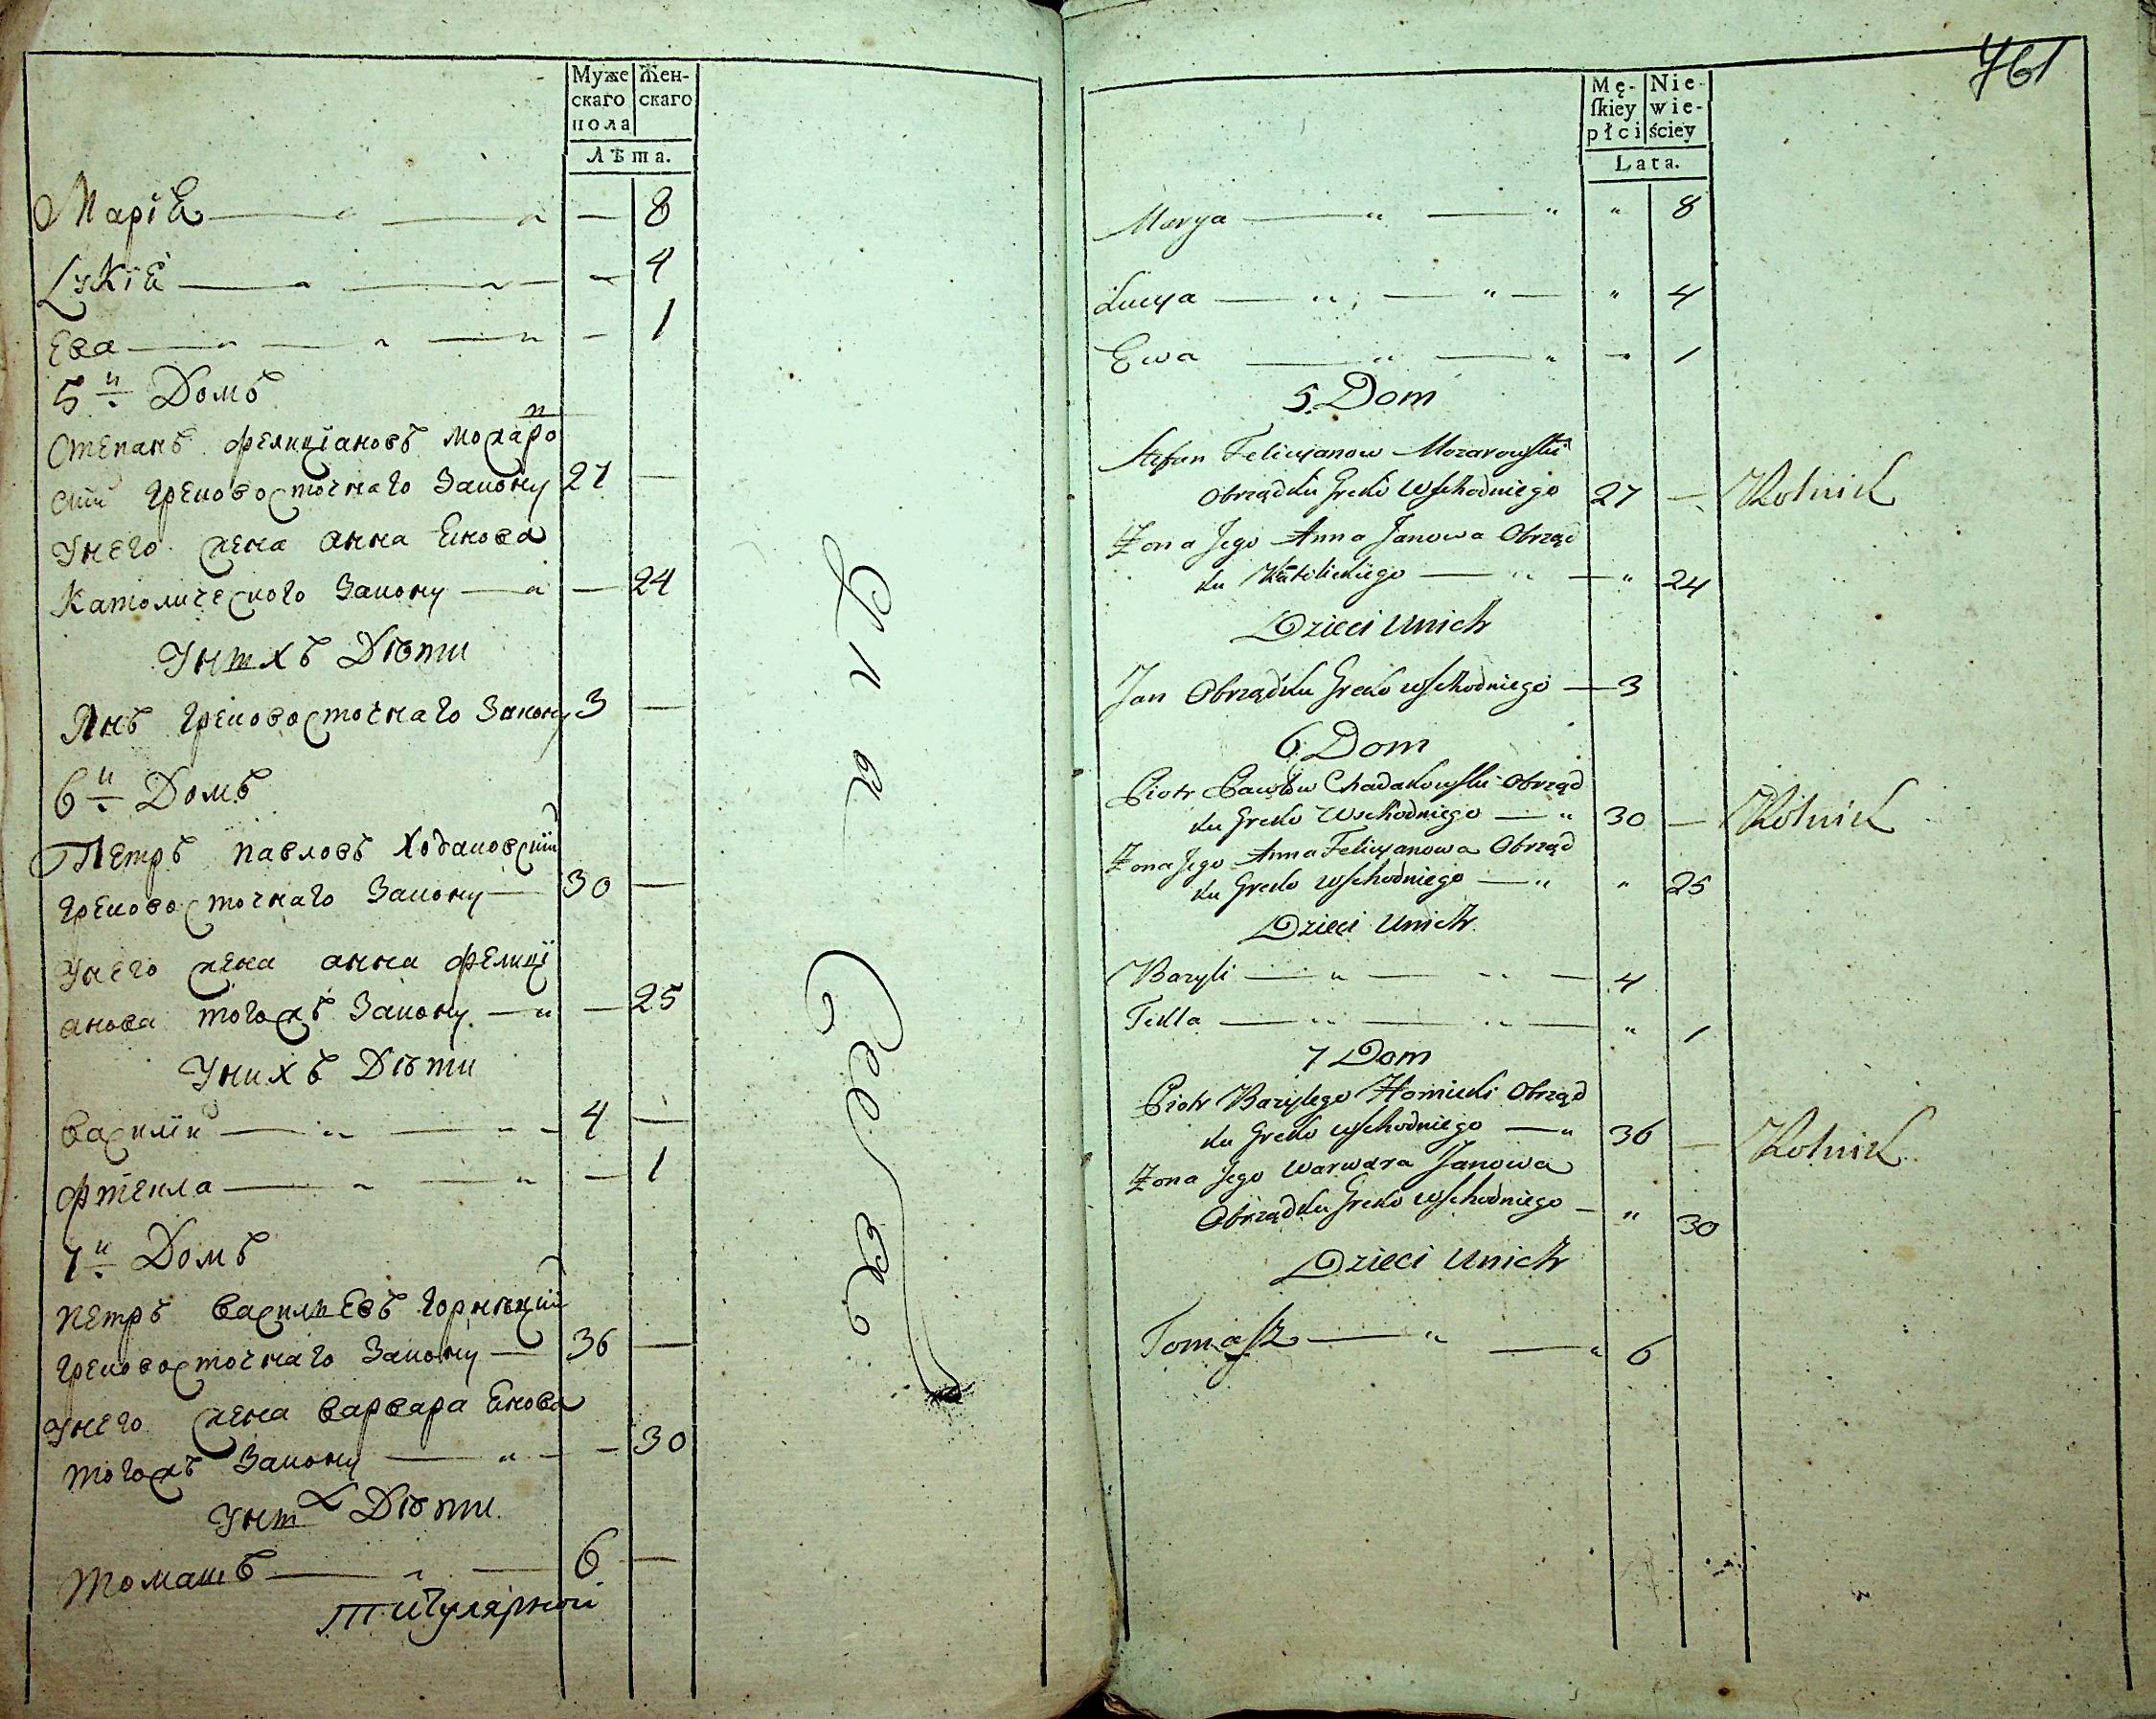 Муже скаго пола
Жен- скаго
Лѣта.
Маріѣ — — — 8
Lукіѣ — — — 4
Ева — — — 1
5й Домъ
Степанъ Фелиціановъ можаро
скій Грековосточнаго Закону 27 —
Унего жена анна Енова
Католического Закону — — 24
Унихъ Дѣти
Янъ Грековосточнаго Закону 3 —
6й Домъ
Петръ Павловъ Ходаковскій
Грековосточнаго Закону — 30 —
Унего жена анна Фелиці
анова тогожъ Закону — — 25
Унихъ Дѣти
Василій — — 4 —
Фтекла — — — 1
7й Домъ
Петръ Васильевъ Горницкий
Грековосточнаго Закону — 36 —
Унего жена Варвара Енова
тогожъ Закону — — 30
Уних Дѣти
Томашъ — — 6 —
Титулярной
761
Mę- ſkiey płci
Nie- wie- ściey
Lata.
Marya — — " 8
Łucya — — " 4
Ewa — — " 1
5 Dom
Stefan Felicyanow Mozarowski
Obrządku Greko Wschodniego 27 — Rolnik
Żona Jego Anna Janowa Obrząd
ku Katolickiego — — " 24
Dzieci Unich
Jan Obrządku Greko Wschodniego — 3
6 Dom
Piotr Pawłow Chadakowski Obrząd
ku Greko Wschodniego — " 30 — Rolnik
Żona Jego Anna Felicyanowa Obrząd
ku Greko Wschodniego — " " 25
Dzieci Unich
Bazyli — — — 4
Tekla — — — " 1
7 Dom
Piotr Bazylego Hornicki Obrząd
ku Greko Wschodniego — " 36 — Rolnik
Żona Jego Warwara Janowa
Obrządku Greko Wschodniego — " 30
Dzieci Unich
Tomasz — " — " 6